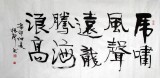 虎嘯
風聲
遠龍
騰海
浪高